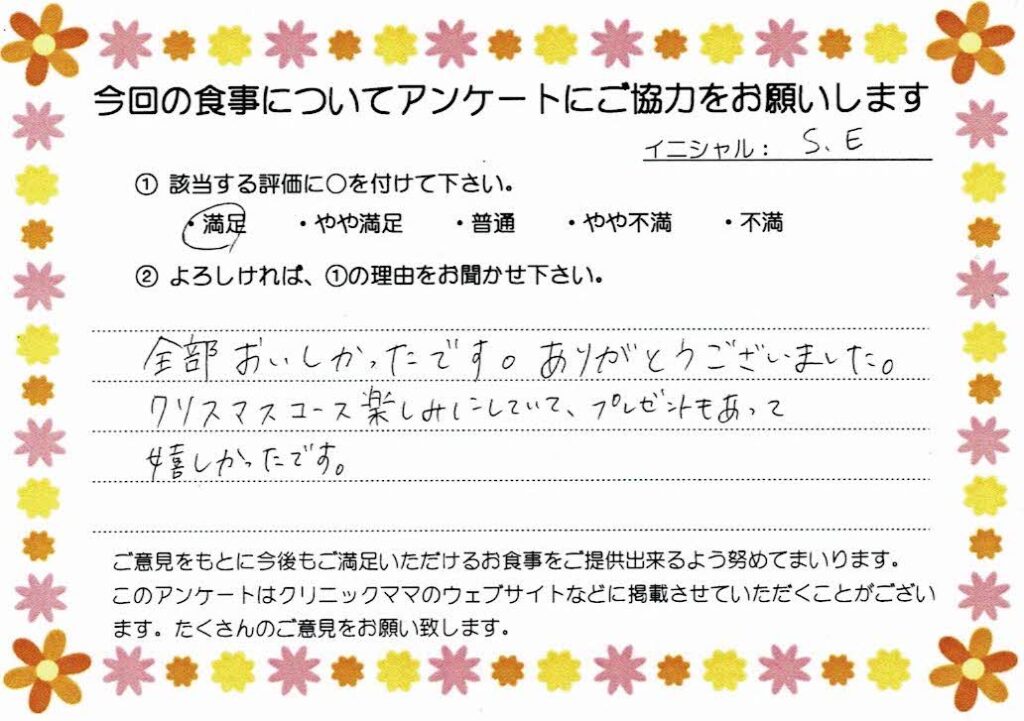 今回の食事についてアンケートにご協力をお願いします
イニシャル： S.E
① 該当する評価に○を付けて下さい。
・満足 ・やや満足 ・普通 ・やや不満 ・不満
② よろしければ、①の理由をお聞かせ下さい。
全部おいしかったです。ありがとうございました。
クリスマスコース楽しみにしていて、プレゼントもあって
嬉しかったです。
ご意見をもとに今後もご満足いただけるお食事をご提供出来るよう努めてまいります。
このアンケートはクリニックママのウェブサイトなどに掲載させていただくことがござい
ます。たくさんのご意見をお願い致します。